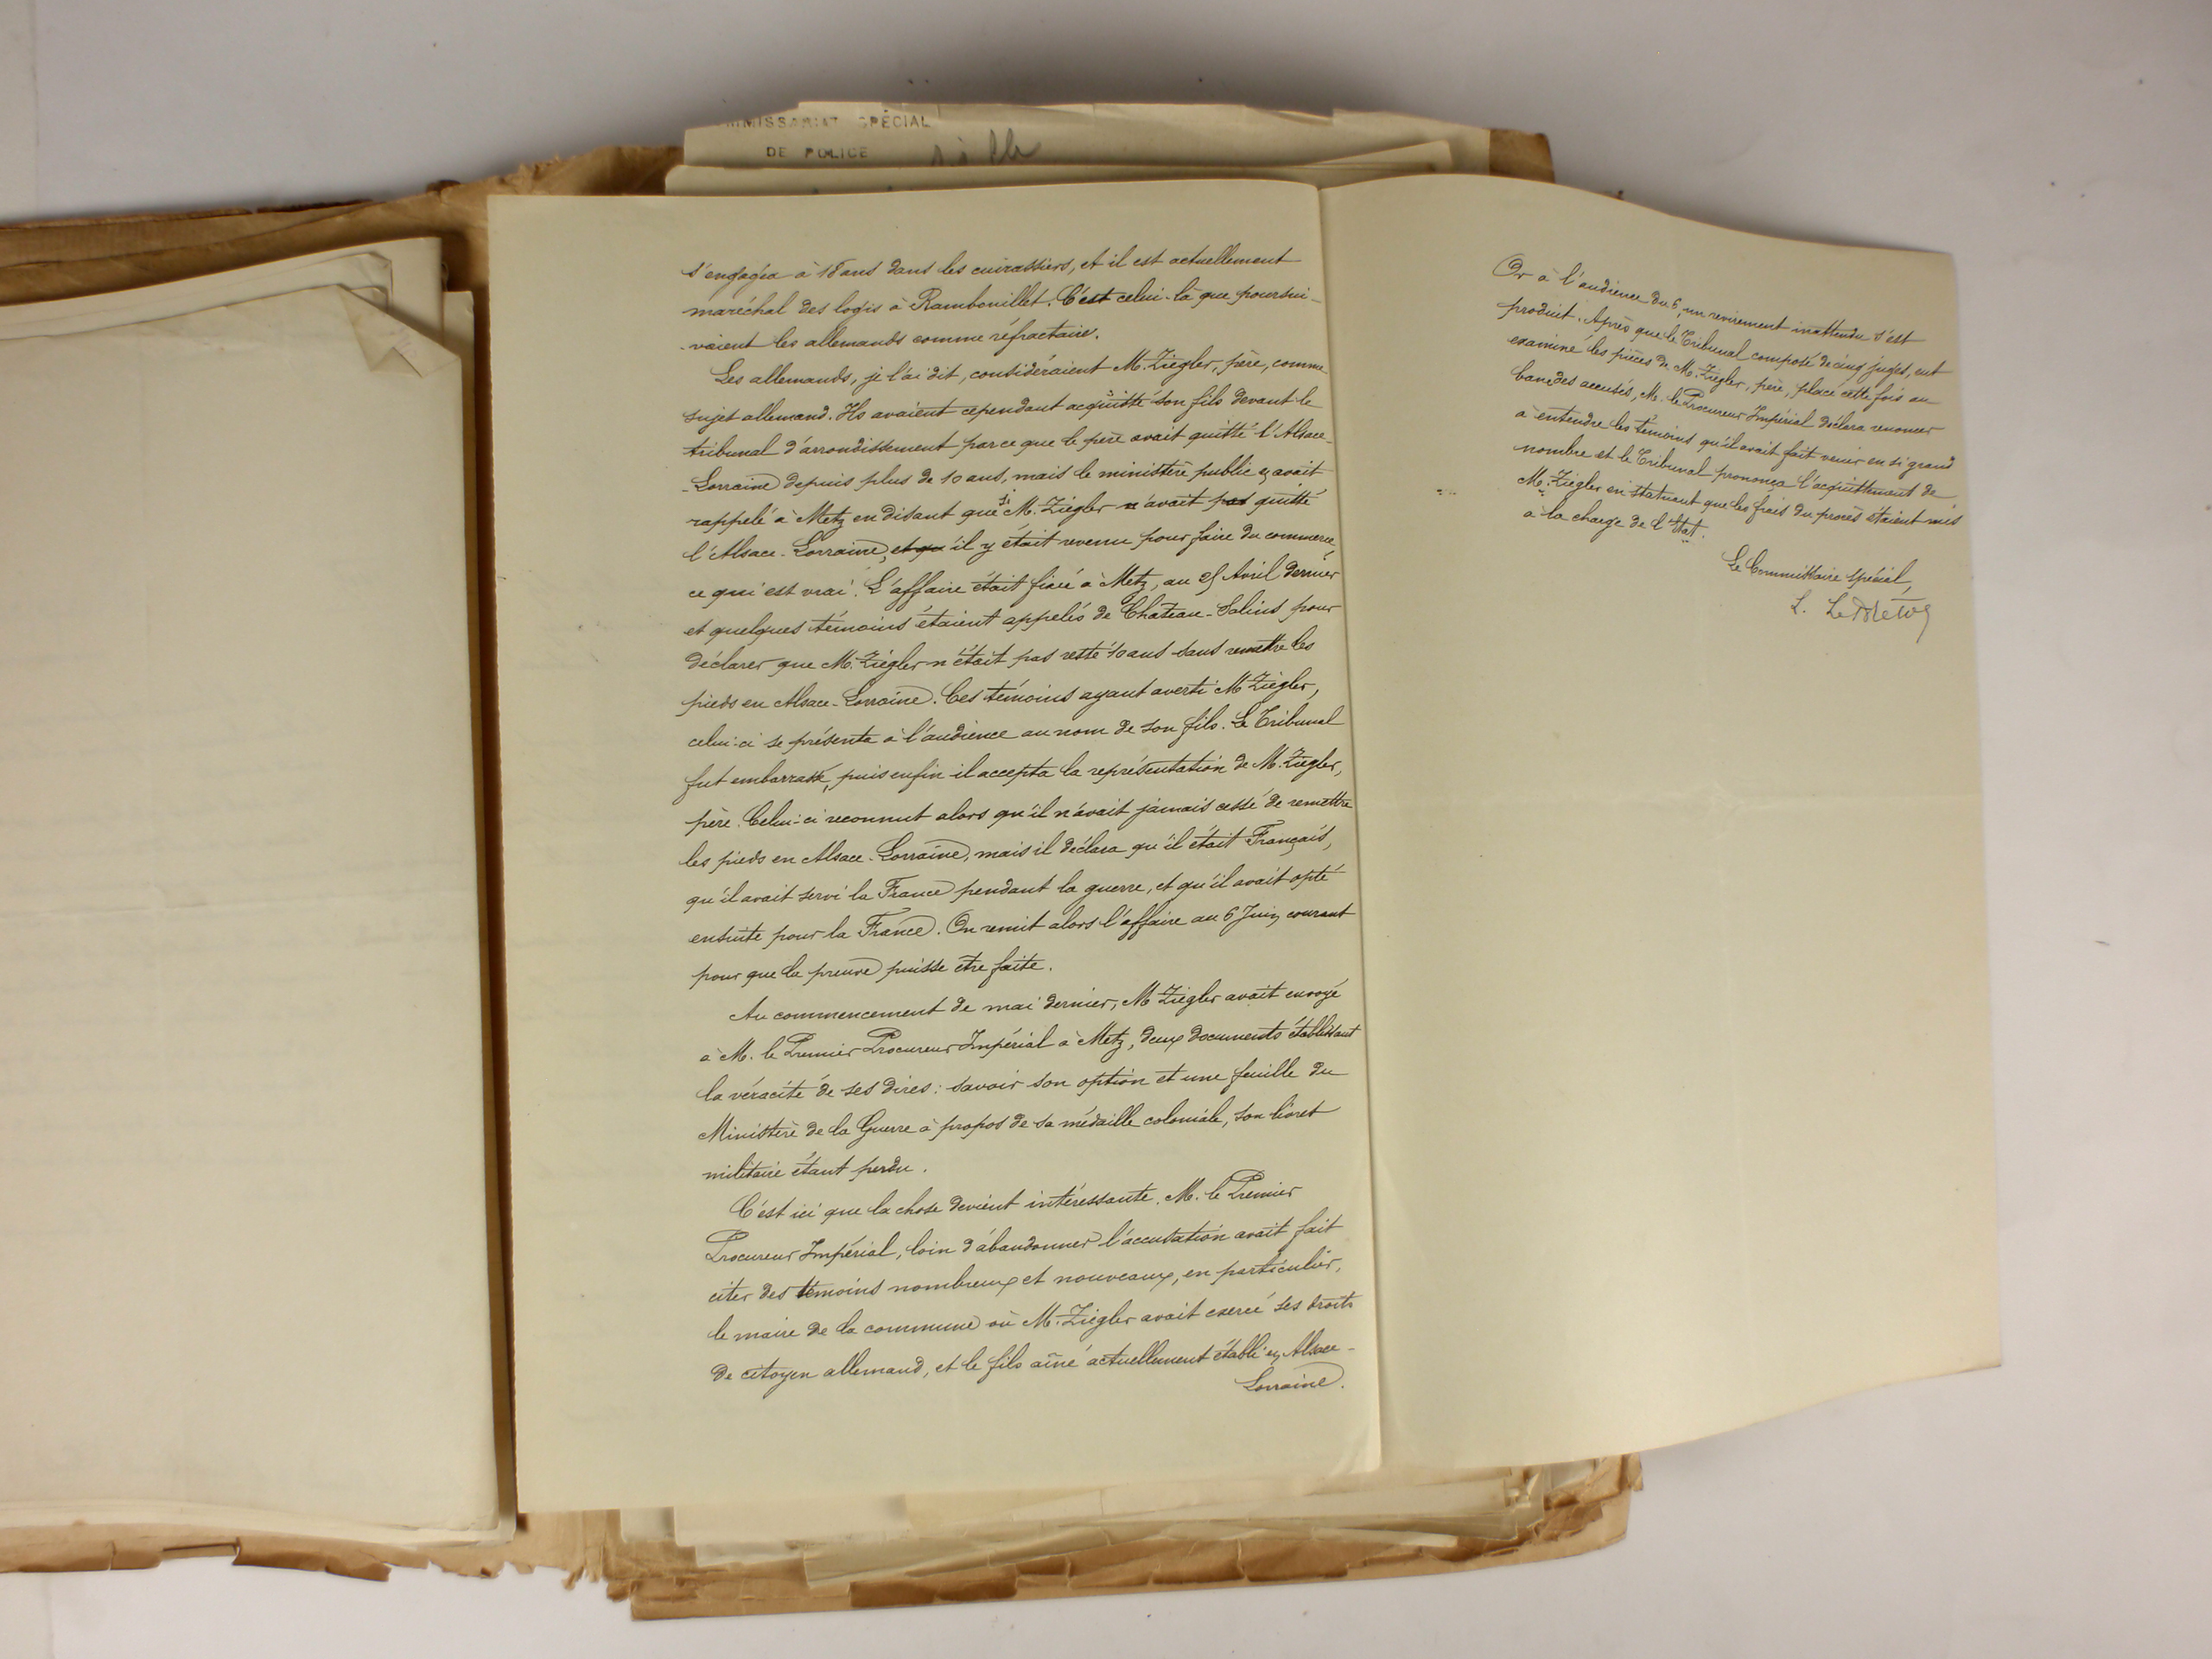 COMMISSARIAT SPÉCIAL
DE POLICE
s'engagea à 18 ans dans les cuirassiers, et il est actuellement
maréchal des logis à Rambouillet. C'est celui-là que poursui-
-vaient les allemands comme réfractaire.
Les allemands, je l'ai dit, considéraient M. Ziegler, père, comme
sujet allemand. Ils avaient cependant acquitté son fils devant le
tribunal d'arrondissement parce que le père avait quitté l'Alsace-
-Lorraine depuis plus de 10 ans, mais le ministère public en avait
rappelé à Metz en disant que si M. Ziegler n'avait pas quitté
l'Alsace-Lorraine, et qu'il y était revenu pour faire du commerce,
ce qui est vrai. L'affaire était fixée à Metz, au Avril dernier
et quelques témoins étaient appelés de Château-Salins pour
déclarer que M. Ziegler n'était pas resté 10 ans sans remettre les
pieds en Alsace-Lorraine. Ces témoins ayant averti M Ziegler,
celui-ci se présenta à l'audience au nom de son fils. Le Tribunal
fut embarrassé, puis enfin il accepta la représentation de M. Ziegler,
père. Celui-ci reconnut alors qu'il n'avait jamais cessé de remettre
les pieds en Alsace-Lorraine, mais il déclara qu'il était Français,
qu'il avait servi la France pendant la guerre, et qu'il avait opté
ensuite pour la France. On remit alors l'affaire au 6 Juin courant
pour que la preuve puisse être faite.
Au commencement de mai dernier, M Ziegler avait envoyé
à M. le Premier Procureur Impérial à Metz, deux documents établissant
la véracité de ses dires: savoir son option et une feuille du
Ministère de la Guerre à propos de sa médaille coloniale, son livret
militaire étant perdu.
C'est ici que la chose devient intéressante. M. le Premier
Procureur Impérial, loin d'abandonner l'accusation avait fait
citer des témoins nombreux et nouveaux, en particulier,
le maire de la commune où M. Ziegler avait exercé ses droits
de citoyen allemand, et le fils aîné actuellement établi en Alsace-
Lorraine.
Or à l'audience du 6, un revirement inattendu s'est
produit. Après que le Tribunal composé de cinq juges, eut
examiné les pièces de M. Ziegler, père, placé cette fois au
banc des accusés, M. le Procureur Impérial déclara renoncer
à entendre les témoins qu'il avait fait venir en si grand
nombre et le Tribunal prononça l'acquittement de
M. Ziegler en statuant que les frais du procès étaient mis
à la charge de l'Etat.
Le Commissaire spécial,